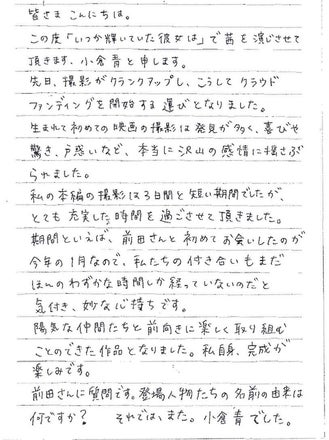 皆さま こんにちは。
この度「いつか輝いていた彼女は」で茜を演じさせて
頂きます、小倉青と申します。
先日、撮影がクランクアップし、こうしてクラウド
ファンディングを開始する運びとなりました。
生まれて初めての映画の撮影は発見が多く、喜びや
驚き、戸惑いなど、本当に沢山の感情に揺さぶ
られました。
私の本編の撮影は3日間と短い期間でしたが、
とても充実した時間を過ごさせて頂きました。
期間といえば、前田さんと初めてお会いしたのが
今年の1月なので、私たちの付き合いもまだ
ほんのわずかな時間しか経っていないのだと
気付き、妙な心持ちです。
陽気な仲間たちと前向きに楽しく取り組む
ことのできた作品となりました。私自身、完成が
楽しみです。
前田さんに質問です。登場人物たちの名前の由来は
何ですか? それでは、また。小倉青でした。